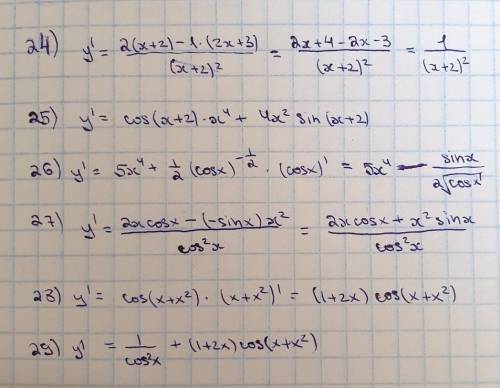 24) y' = \frac{2(x+2) - 1 \cdot (2x+3)}{(x+2)^2} = \frac{2x+4-2x-3}{(x+2)^2} = \frac{1}{(x+2)^2}
25) y' = cos(x+2) · x⁴ + 4x² sin(x+2)
26) y' = 5x⁴ + \frac{1}{2} (cosx)^{-\frac{1}{2}} · (cosx)' = 5x⁴ - \frac{sinx}{2\sqrt{cosx}}
27) y' = \frac{2x cosx - (-sinx) x^2}{cos^2x} = \frac{2x cosx + x^2 sinx}{cos^2x}
28) y' = cos(x+x²) · (x+x²)' = (1+2x) cos(x+x²)
29) y' = \frac{1}{cos^2x} + (1+2x) cos(x+x²)